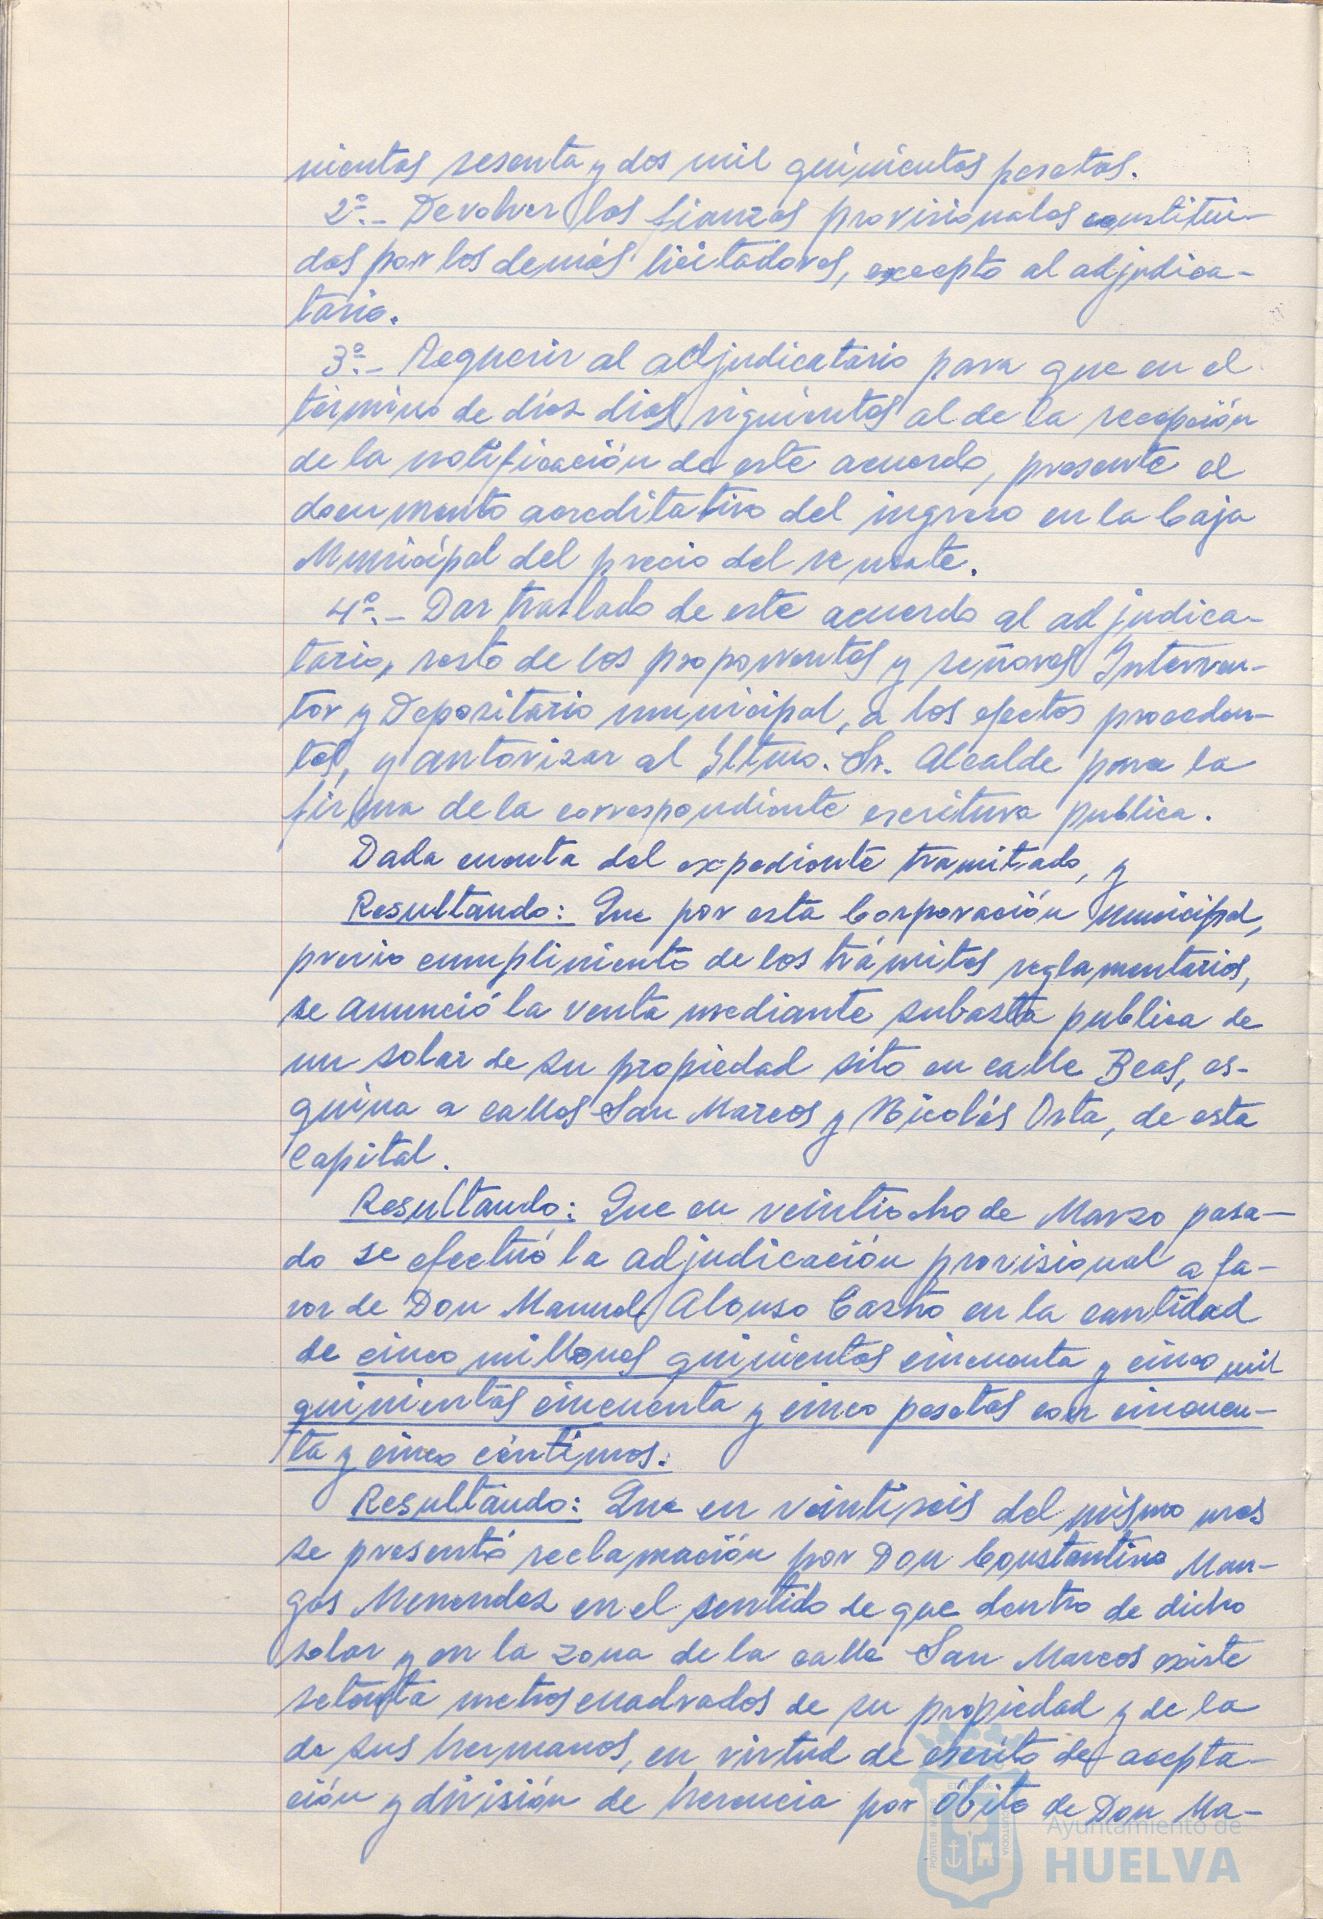 nientas sesenta y dos mil quinientas pesetas.
2º.- Devolver las fianzas provisionales constitui-
das por los demás licitadores, excepto al adjudica-
tario.
3º.- Requerir al adjudicatario para que en el
término de diez dias siguientes al de la recepción
de la notificación de este acuerdo, presente el
documento acreditativo del ingreso en la Caja
Municipal del precio del remate.
4º.- Dar traslado de este acuerdo al adjudica-
tario, resto de los proponentes y señores Interven-
tor y Depositario municipal, a los efectos proceden-
tes, y autorizar al Iltmo. Sr. Alcalde para la
firma de la correspondiente escritura publica.
Dada cuenta del expediente tramitado, y
Resultando: Que por esta Corporación Municipal,
previo cumplimiento de los trámites reglamentarios,
se anunció la venta mediante subasta publica de
un solar de su propiedad sito en calle Beas, es-
quina a calles San Marcos y Nicolás Orta, de esta
Capital.
Resultando: Que en veintiocho de Marzo pasa-
do se efectuó la adjudicación provisional a fa-
vor de Don Manuel Alonso Castro en la cantidad
de cinco millones quinientas cincuenta y cinco mil
quinientas cincuenta y cinco pesetas con cincuen-
ta y cinco céntimos.
Resultando: Que en veintiseis del mismo mes
se presentó reclamación por Don Constantino Man-
gas Menendez en el sentido de que dentro de dicho
solar y en la zona de la calle San Marcos existe
setenta metros cuadrados de su propiedad y de la
de sus hermanos, en virtud de escrito de acepta-
ción y división de herencia por óbito de Don Ma-
Ayuntamiento de
HUELVA